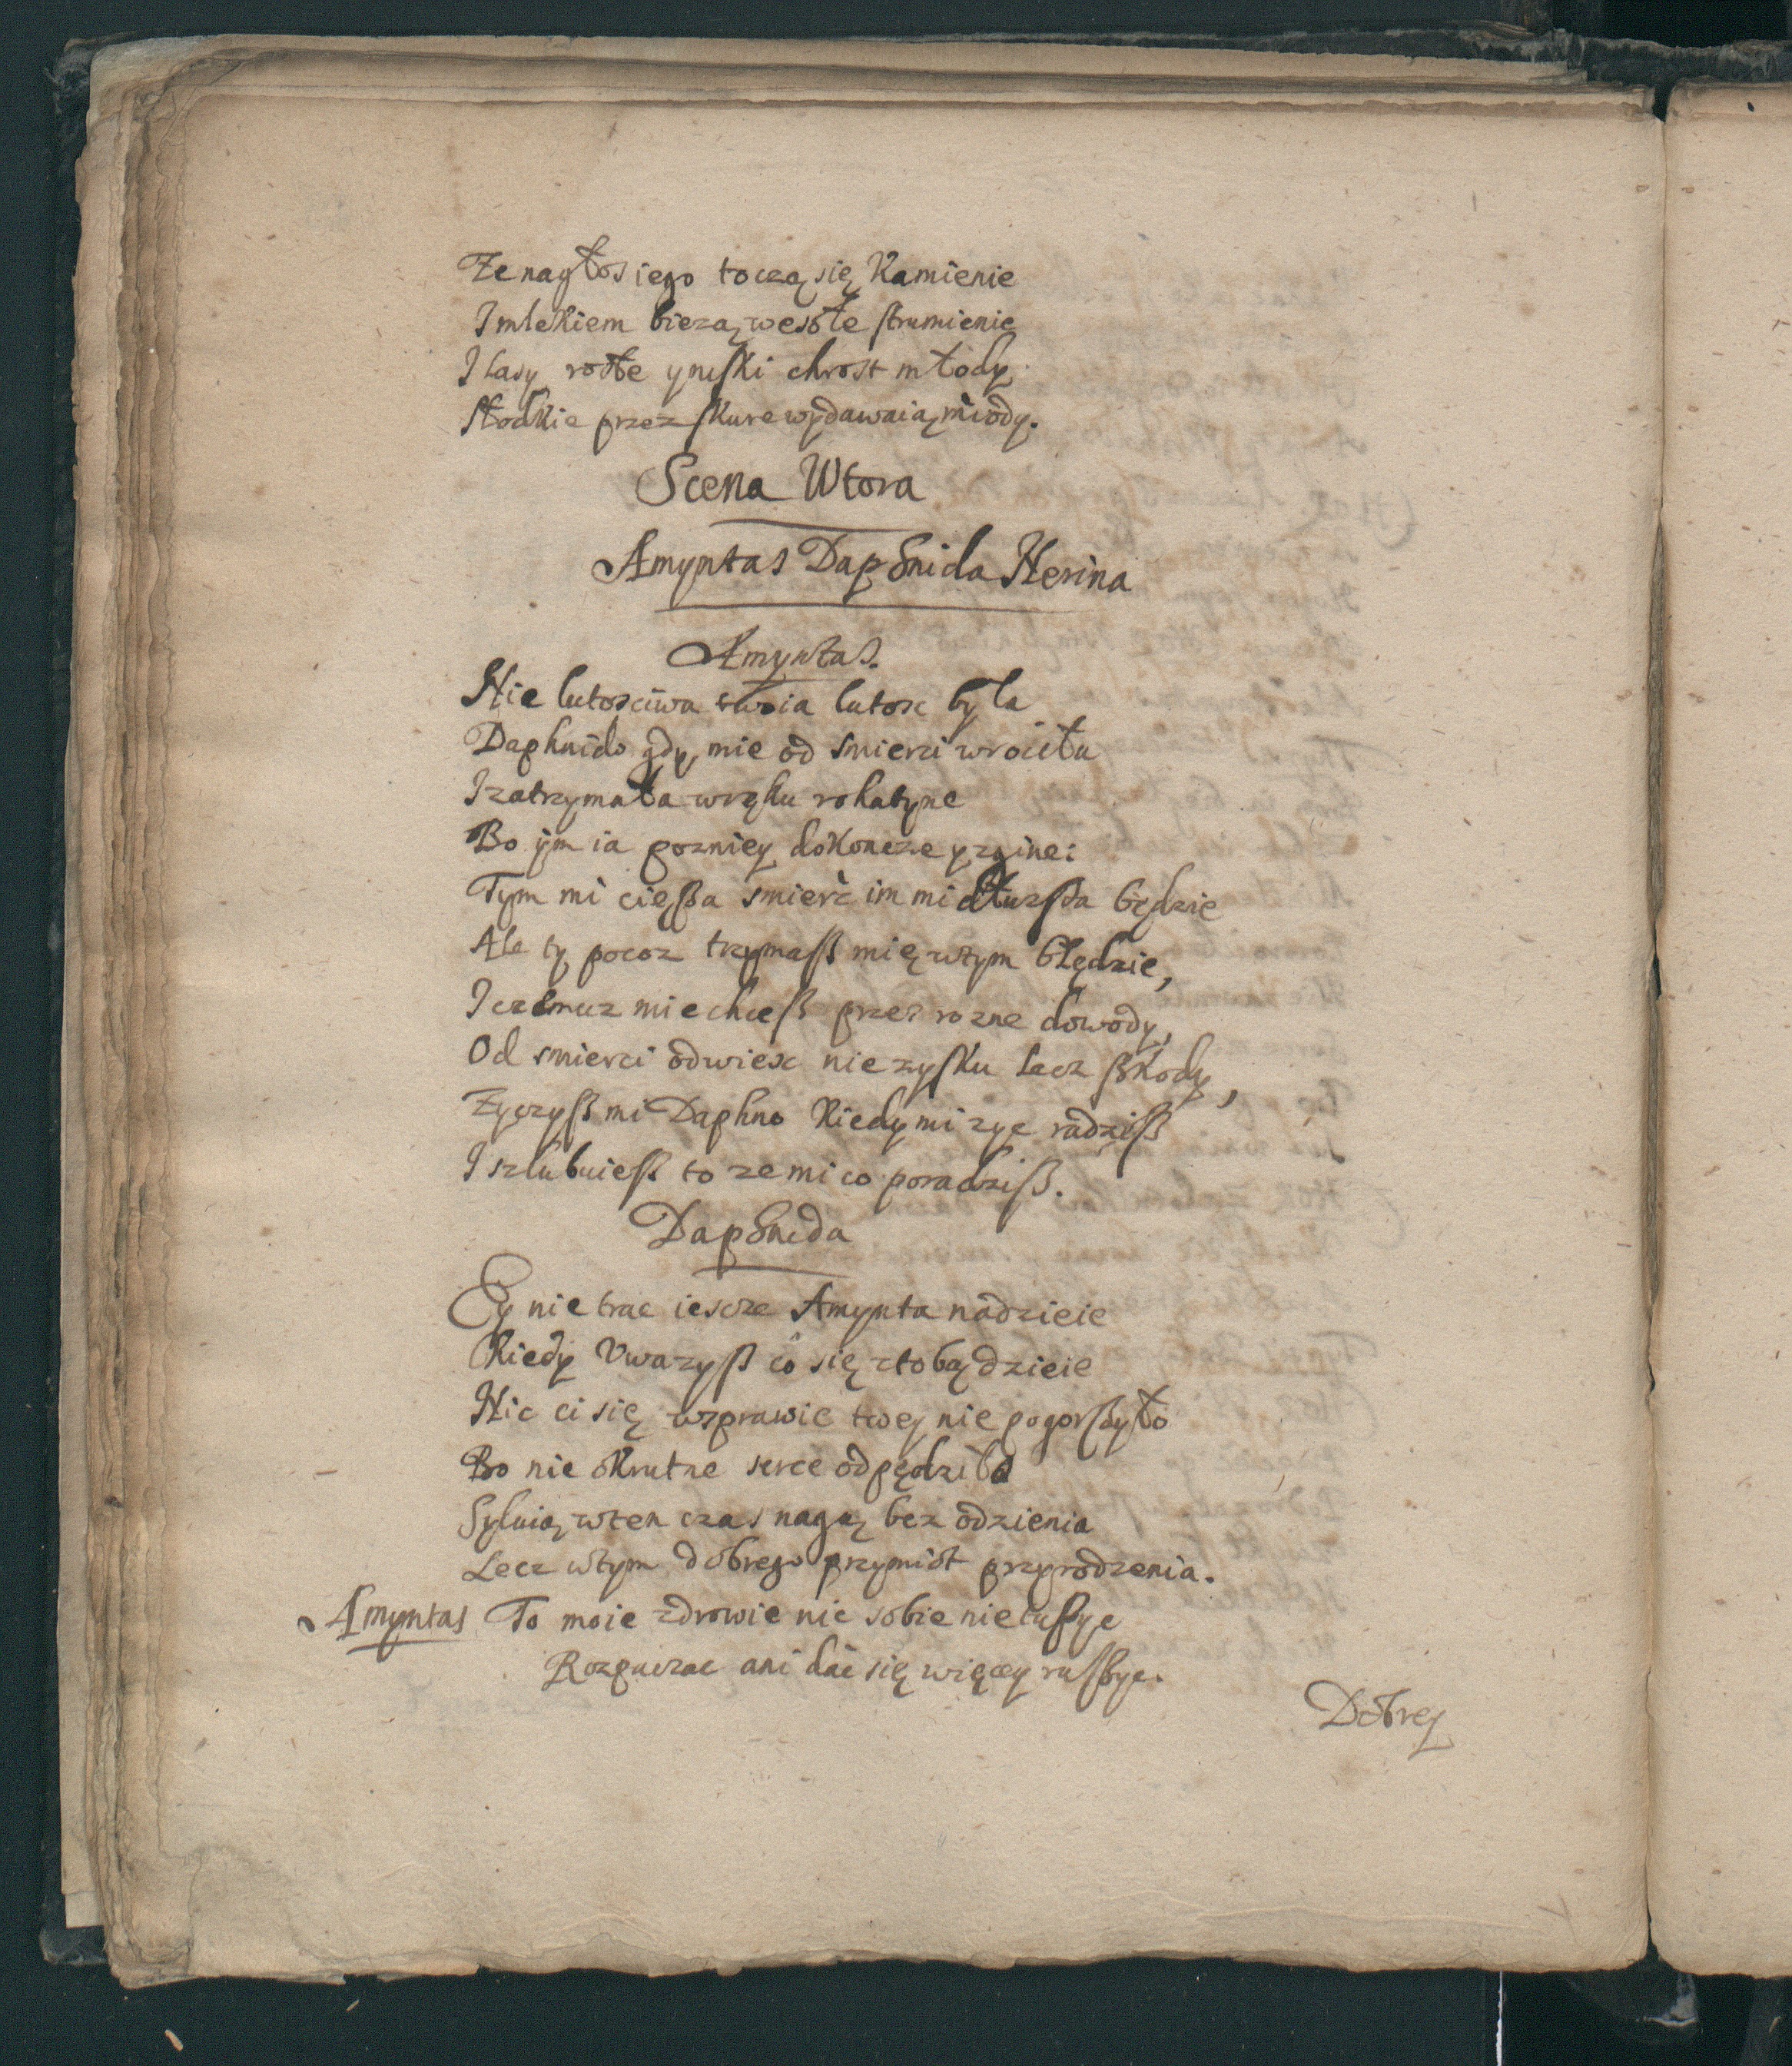 Ze na głos iego toczą się Kamienie
I mlekiem biezą wesołe strumienie
I lasy rosłe y niski chrost młody
Słodkie przez skure wydawaią miody.
Scena Wtora
Amyntas Daphnida Nerina
Amyntas.
Nie lutosciwa twoia lutosc była
Daphnido gdy mie od smierci wrociła
I zatrzymała wręku rohatyne
Bo ijm ia pozniey dokoncze y zgine:
Tym mi cięßa smierć im mi dłuzßa będzie
Ale ty pocoz trzymaß mię wtym błędzie,
I czemuz mie chceß przez rozne dowody,
Od smierci odwiesc nie zysku lecz ßkody,
Zyczyß mi Daphno Kiedy mi zyc radziß
I szlubuieß to ze mi co poradziß.
Daphnida
Ey nie trac iescze Amynta nadzieie
Kiedy Uwazyß co się ztobą dzieie
Nic ci się wsprawie twey nie pogorßyło
Bo nie okrutne serce odpędziło
Sylvią wten czas nagą bez odzienia
Lecz wtym dobrego przymiot przyrodzenia.
Amyntas To moie zdrowie nic sobie nie tußyc
Rozpaczac ani dać się więcey rußyc.
Dobrey